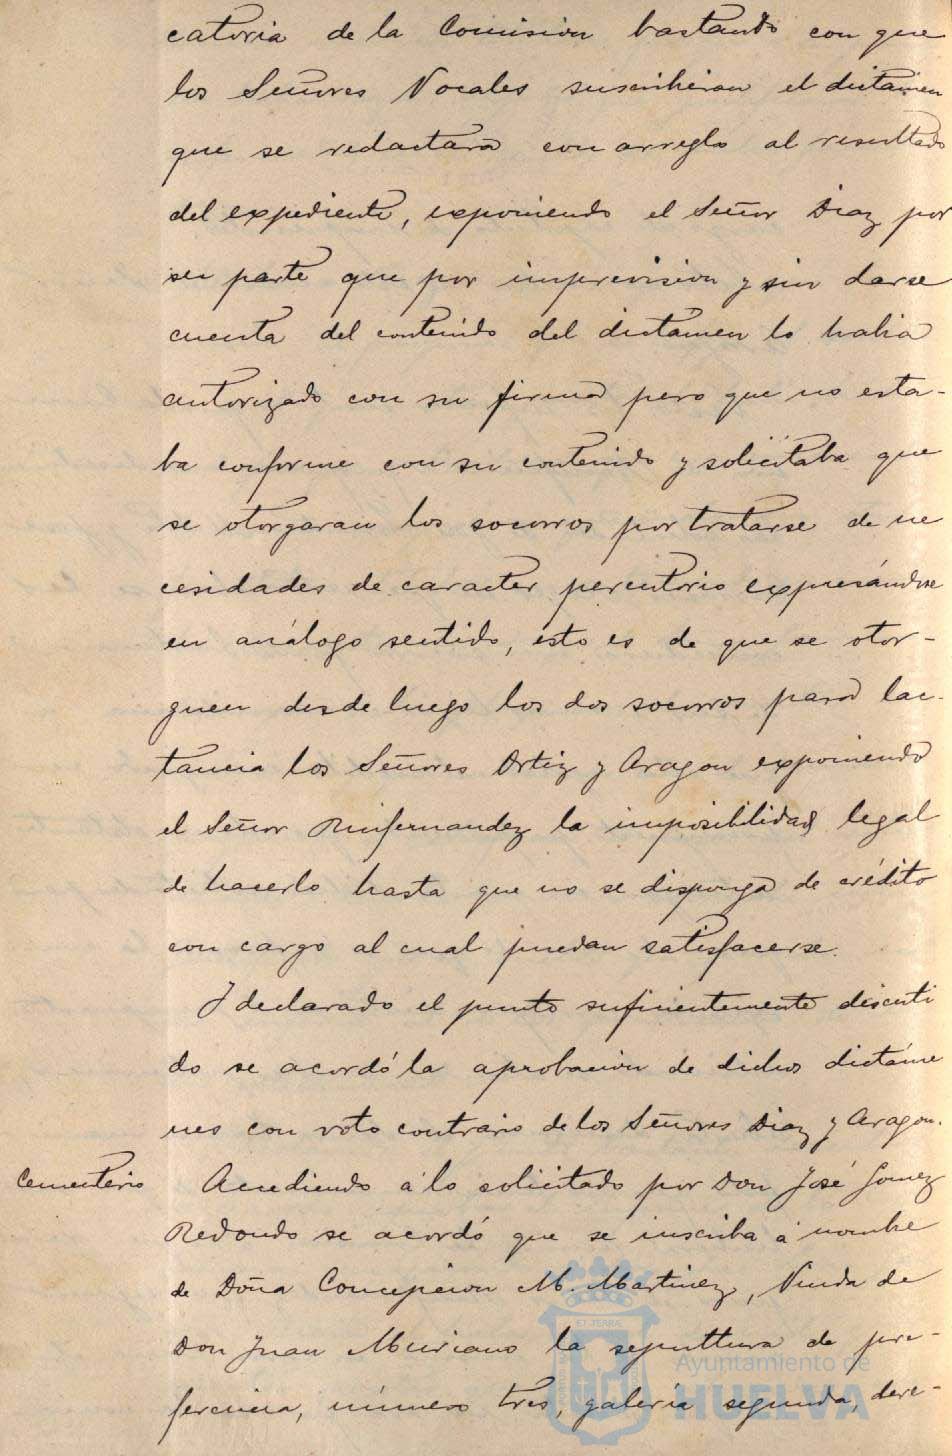 catoria de la Comision bastando con que
los Señores Vocales suscribieran el dictamen
que se redactara con arreglo al resultado
del expediente, exponiendo el Señor Diaz por
su parte que por imprevision y sin darse
cuenta del contenido del dictamen lo habia
autorizado con su firma pero que no esta-
ba conforme con su contenido y solicitaba que
se otorgaran los socorros por tratarse de ne
cesidades de caracter perentorio expresándose
en análogo sentido, esto es de que se otor-
guen desde luego los dos socorros para lac-
tancia los Señores Ortiz y Aragon exponiendo
el Señor Rinfernandez la imposibilidad legal
de hacerlo hasta que no se disponga de crédito
con cargo al cual puedan satisfacerse.
Y declarado el punto suficientemente discuti
do se acordó la aprobacion de dichos dictáme
nes con voto contrario de los Señores Diaz y Aragon.
Cementerio Accediendo á lo solicitado por Don José Gomez
Redondo se acordó que se inscriba á nombre
de Doña Concepcion M. Martinez, Viuda de
Don Juan Muriano la sepultura de pre-
ferencia, número tres, galería segunda, dere-
ET TERRÆ
Ayuntamiento de
HUELVA